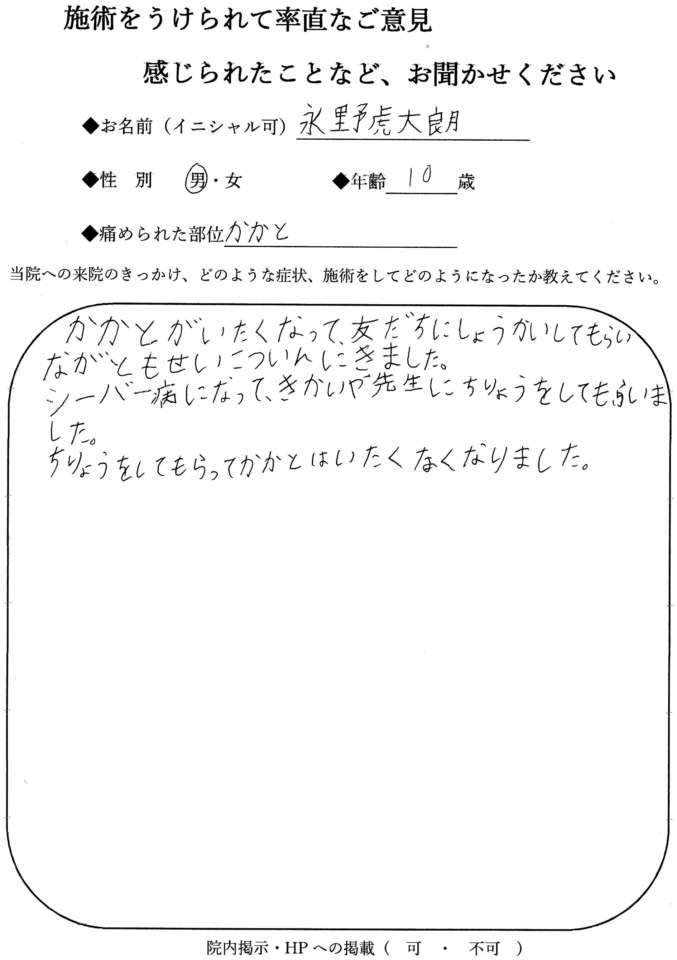 施術をうけられて率直なご意見
感じられたことなど、お聞かせください
◆お名前（イニシャル可）永野虎大朗
◆性　別　男・女　◆年齢 10 歳
◆痛められた部位 かかと
当院への来院のきっかけ、どのような症状、施術をしてどのようになったか教えてください。
かかとがいたくなって、友だちにしょうかいしてもらい
ながともせいこついんにきました。
シーバー病になって、きかいや先生にちりょうをしてもらいま
した。
ちりょうをしてもらってかかとはいたくなくなりました。
院内掲示・HPへの掲載（　可　・　不可　）